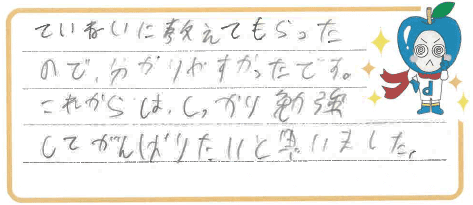 ていねいに教えてもらった
ので、分かりやすかったです。
これからは、しっかり勉強
してがんばりたいと思いました。
d